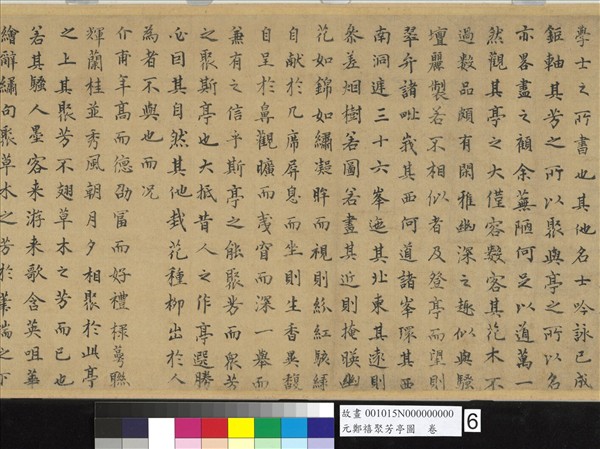 學士之所書也其他名士吟詠已成
鉅軸其芳之所以聚與亭之所以名
亦畧盡之顧余蕪陋何足以道萬一
然觀其亭之大僅容數客其花木不
過數品頗有閑雅幽深之趣似與騷
壇麗製若不相似者及登亭而望則
翠弁諸峨其西何道諸峯環其西
南洞庭三十六峯迤其北東其遠則
叅差烟樹若圖若畫其近則掩暎幽
花如錦如繡凝眸而視則紛紅駭綠
自献於几席屏息而坐則生香異馥
自呈於鼻觀曠而窅而深一舉而
兼有之信乎斯亭之能聚芳而衆芳
之聚斯亭也大抵昔人之作亭選勝
必曰其自然其他栽花種柳出於人
為者不與也而况
介甫年高而德邵冨而好禮棣萼聮
輝蘭桂並秀風朝月夕相聚於此亭
之上其聚芳不翅草木之芳而已也
若其騷人墨客来游来歌含英咀華
繪辭繡句聚草木之芳於筆端之下
故畫 001015N000000000
元鄭禧聚芳亭圖 卷
6